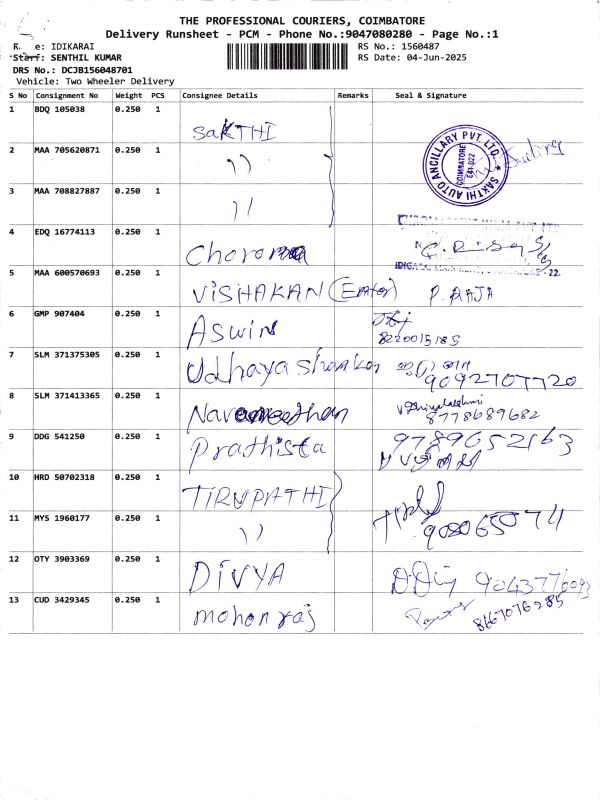 THE PROFESSIONAL COURIERS, COIMBATORE
Delivery Runsheet - PCM - Phone No.:9047080280 - Page No.:1
IDIKARAI
RS No.: 1560487
Staff: SENTHIL KUMAR
RS Date: 04-Jun-2025
DRS No.: DCJB156048701
Vehicle: Two Wheeler Delivery
S No Consignment No Weight PCS Consignee Details Remarks Seal & Signature
1 BDQ 105038 0.250 1 SAKTHI
SAKTHI AUTO ANCILLARY PVT. LTD.
COIMBATORE
641-022
2 MAA 705620871 0.250 1 ))
3 MAA 708827887 0.250 1 ))
4 EDQ 16774113 0.250 1
5 MAA 600570693 0.250 1 VISHAKAN P. RAJA
6 GMP 907404 0.250 1 ASwin
8220015185
7 SLM 371375305 0.250 1 Udhaya Shankar
9092707720
8 SLM 371413365 0.250 1
8778689682
9 DDG 541250 0.250 1 Prathista 9789052163
10 HRD 50702318 0.250 1 TIRUPATHI
11 MYS 1960177 0.250 1 ))
12 OTY 3903369 0.250 1 DIVYA
13 CUD 3429345 0.250 1 mohonraj 8667076285